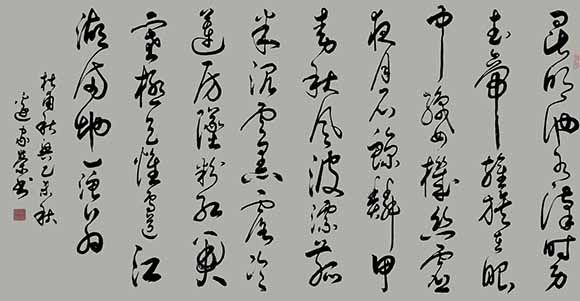 昆明池水漢時功
武帝旌旗在眼
中織女機絲虛
夜月石鯨鱗甲
動秋風波漂菰
米沉雲黑露冷
蓮房墜粉紅關
塞極天惟鳥道江
湖滿地一漁翁
杜甫秋興乙未秋
家榮書